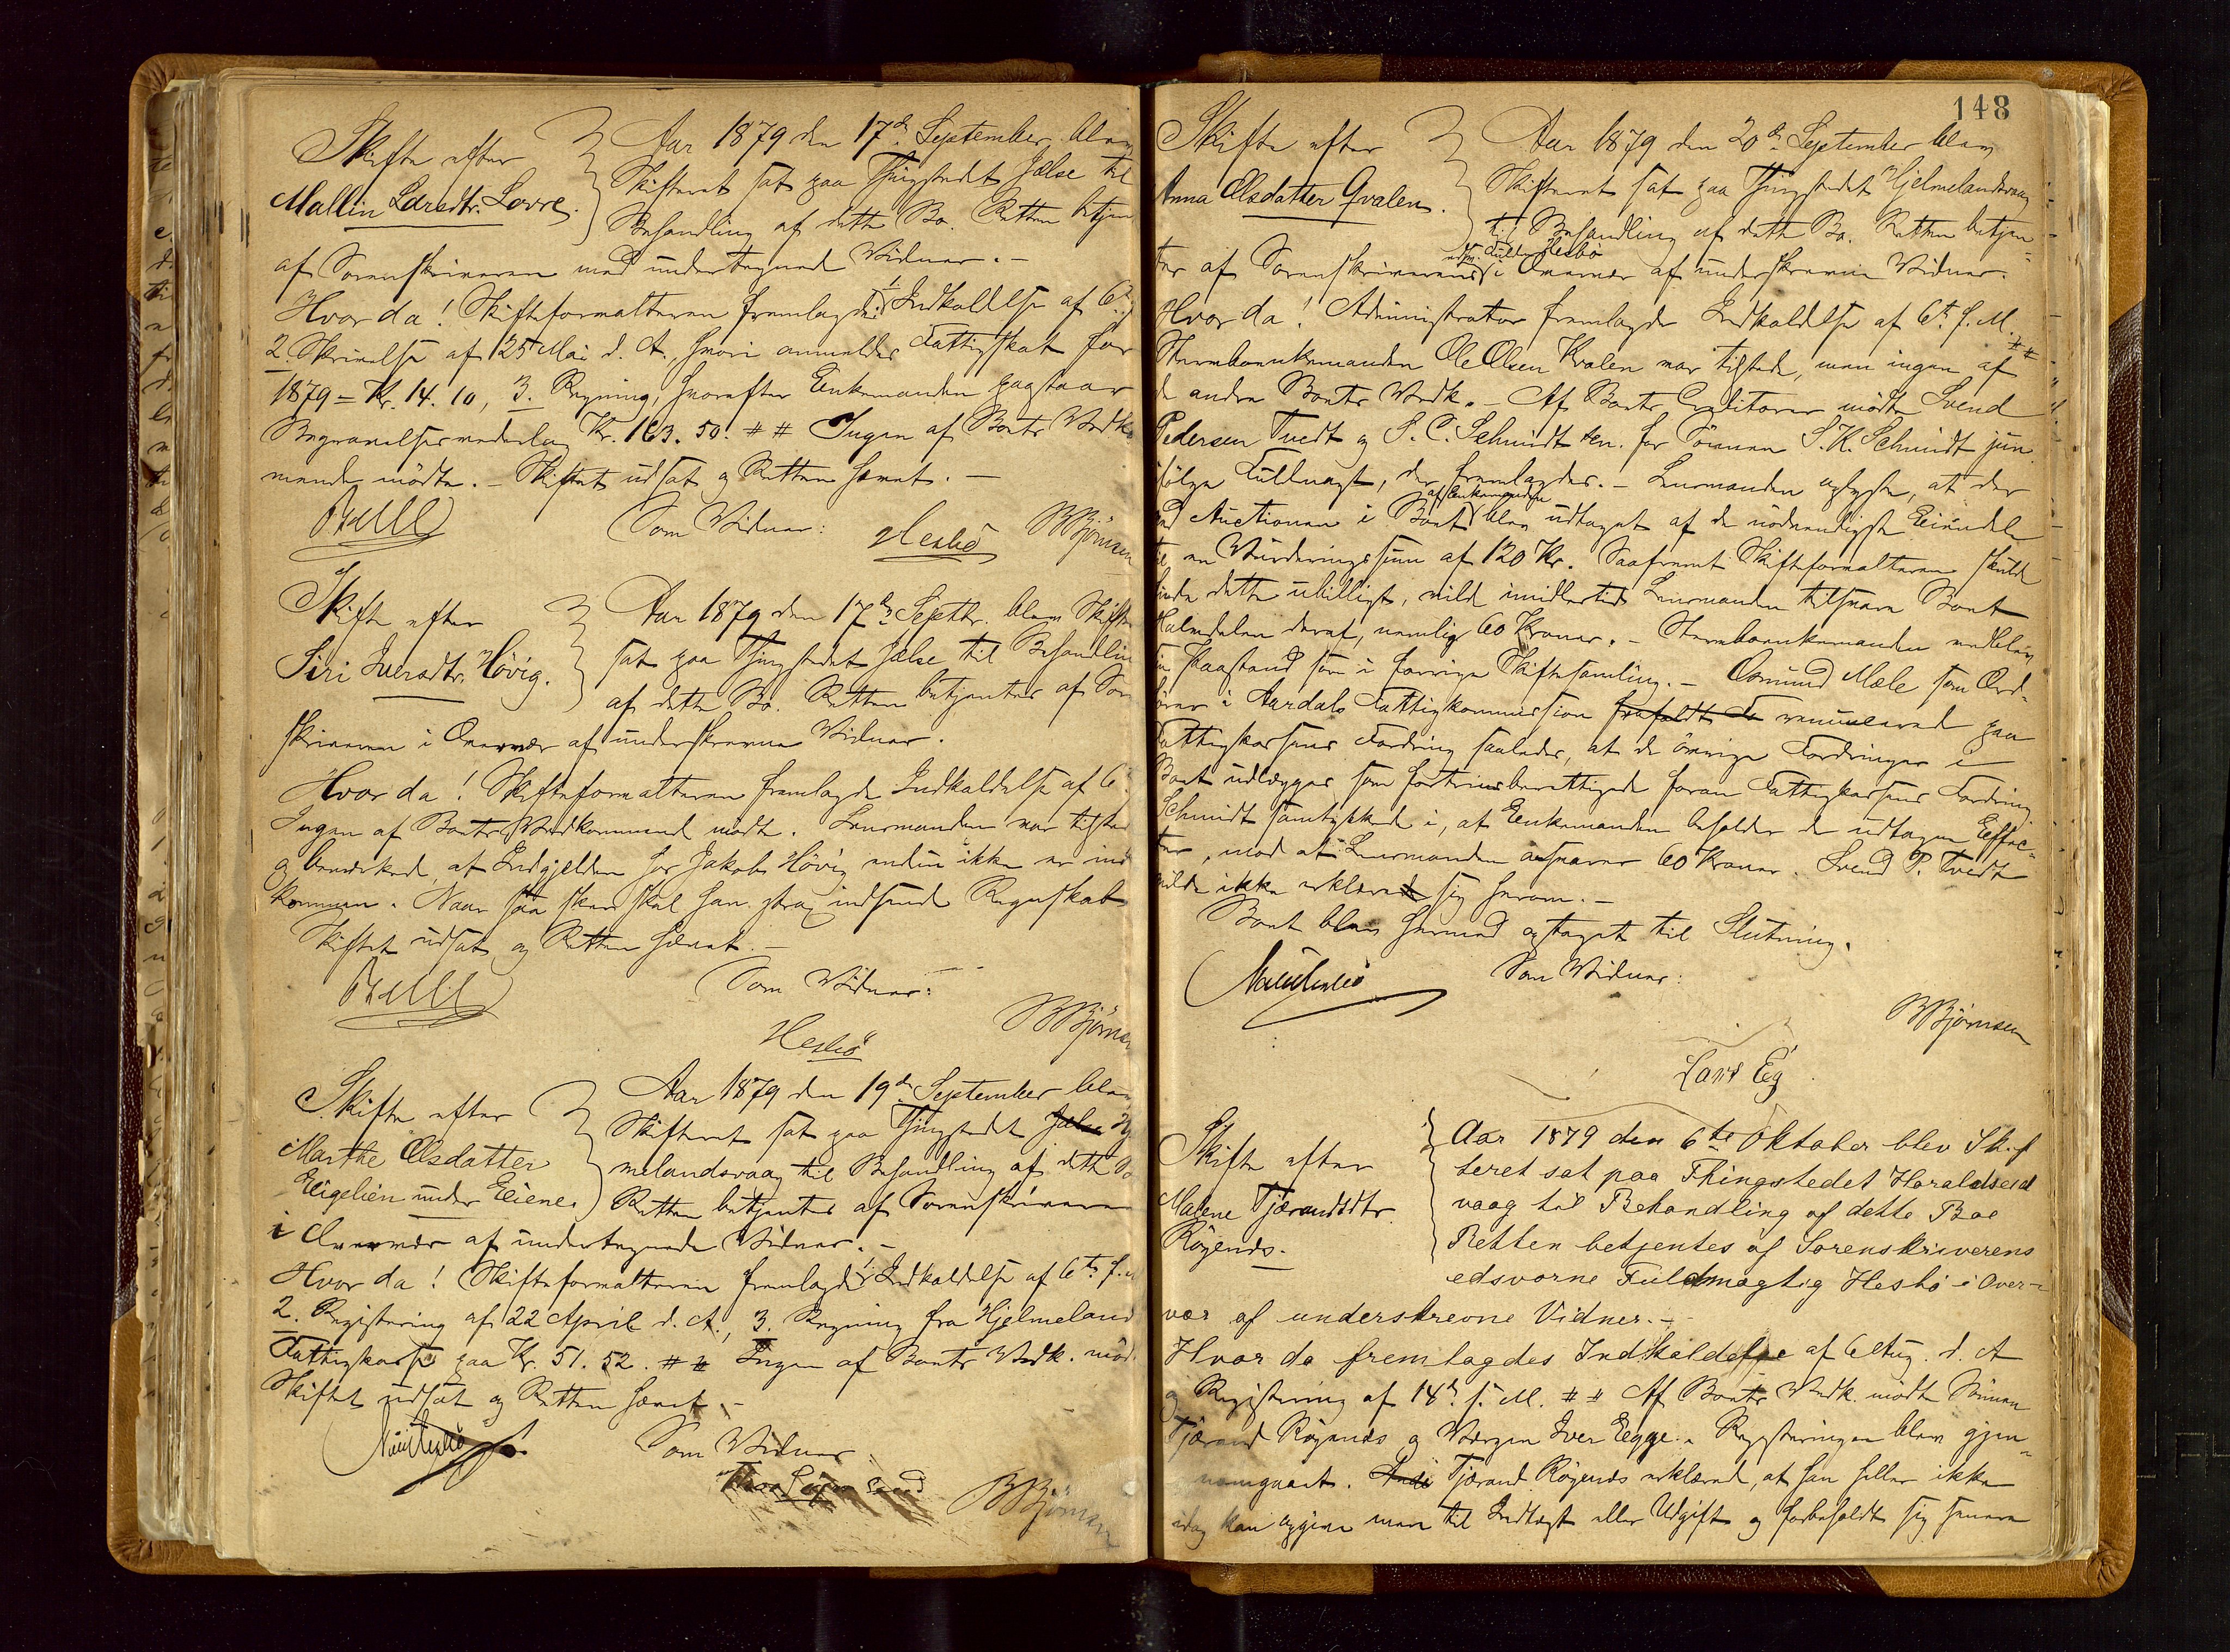 Skifte efter
Mallin Larsdtr. Lovre.
Aar 1879 den 17de September blev
Skifteret sat paa Thingstedet Jælse til
Behandling af dette Bo. Retten betjen
af Sorenskriveren med undertegnede Vidner. –
Hvor da! Skifteforvalteren fremlagde 1. Indkaldelse af 6te
2. Skrivelse af 25 Mai d. A., hvori anmeldes Fattigskat for
1879 = Kr. 14.10, 3. Regning, hvorefter Enkemanden paastaar
Begravelsesvederlag Kr. 163.50. # # Ingen af Boets Vedk
mende mødte. – Skiftet udsat og Retten hævet. –
Som Vidner: Hesbö BBjörnsen
Skifte efter
Siri Iversdtr. Hövig.
Aar 1879 den 17de Septbr. blev Skifte
sat paa Thingstedet Jælse til Behandlin
af dette Bo. Retten betjentes af Sor
skriveren i Overvær af underskrevne Vidner.
Hvor da! Skifteforvalteren fremlagde Indkaldelse af 6
Ingen af Boets Vedkommende mødte. Lensmanden var tilsted
og bemærkede, at Indgjelden hos Jakob Hövig endnu ikke er ind
kommen. Naar saa sker skal han strax indsende Regnskab
Skiftet udsat og Retten hævet. –
Som Vidner:
Hesbö BBjörnsen
Skifte efter
Marthe Olsdatter
Eigelien under Eiene.
Aar 1879 den 19de September blev
Skifteret sat paa Thingstedet Jælse Hj
melandsvaag til Behandling af dette Bo
Retten betjentes af Sorenskriveren
i Overvær af undertegnede Vidner. –
Hvor da! Skifteforvalteren fremlagde 1. Indkaldelse af 6te f.
2. Registrering af 22 April d. A., 3. Regning fra Hjelmeland
Fattigkasse paa Kr. 51.52. # # Ingen af Boets Vedk. mød
Skiftet udsat og Retten hævet. –
Som Vidner
BBjörnsen
148
Skifte efter
Anna Olsdatter Qvalen.
Aar 1879 den 20de September blev
Skifteret sat paa Thingstedet Hjelmelandsvaag
til Behandling af dette Bo. Retten betjen-
Fuldm. Hesbö
tes af Sorenskriverens i Overvær af underskrevne Vidner.
Hvor da! Administrator fremlagde Indkaldelse af 6te f. M. # #
Stervboenkemanden Ole Olsen Kvalen var tilstede, men ingen af
de andre Boets Vedk. – Af Boets Creditorer mødte Svend
Pedersen Tvedt og S. C. Schmidt sen. for Sönnen S. K. Schmidt jun.
ifölge Fuldmagt, der fremlagdes. – Lensmanden oplyste, at der
af Enkemanden
ved Auctionen i Boet blev udtaget af de nödvendigste Eiendele
til en Vurderingssum af 120 Kr. Saafremt Skifteforvalteren skulde
finde dette ubilligt, vilde imidlertid Lensmanden tilsvare Boet
Halvdelen deraf, nemlig 60 Kroner. – Stervboenkemanden vedblev
sin Paastand som i forrige Skiftesamling. – Osmund Mæle som Ord-
förer i Aardals Fattigkommission frafaldt renuncerede paa
Fattigkassens Fordring saaledes, at de övrige Fordringer i
Boet udlægges som fortrinsberettigede foran Fattigkassens Fordring
Schmidt samtykkede i, at Enkemanden beholder de udtagne Effec-
ter, mod at Lensmanden ansvarer 60 Kroner. Svend P. Tvedt
vilde ikke erklære sig herom. –
Boet blev hermed optaget til Slutning.
Som Vidner:
BBjörnsen
Lars Eig
Skifte efter
Malene Tjærandsdtr.
Röjends.
Aar 1879 den 6te Oktober blev Skif
teret sat paa Thingstedet Haraldseid
vaag til Behandling af dette Boe
Retten betjentes af Sorenskriverens
edsvorne Fuldmægtig Hesbö i Over-
vær af underskrevne Vidner. –
Hvor da fremlagdes Indkaldelse af 6 Aug. d. A
og Registrering af 14de f. M. # # Af Boets Vedk. mødte Sönnen
Tjærand Röjends og Værgen Iver Eegge. Registreringen blev gjen-
nemgaaet. Tjærand Röjends erklærede, at han heller ikke
idag kan opgive mere til Indtægt eller Udgift og forbeholdt sig senere